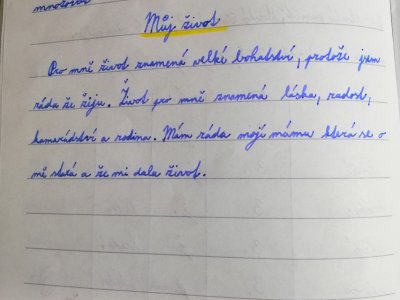 množování
Můj život
Pro mně život znamená velké bohatství, protože jsem
ráda že žiju. Život pro mně znamená láska, radost,
kamarádství a rodina. Mám ráda mojí mámu která se o
mě stará a že mi dala život.